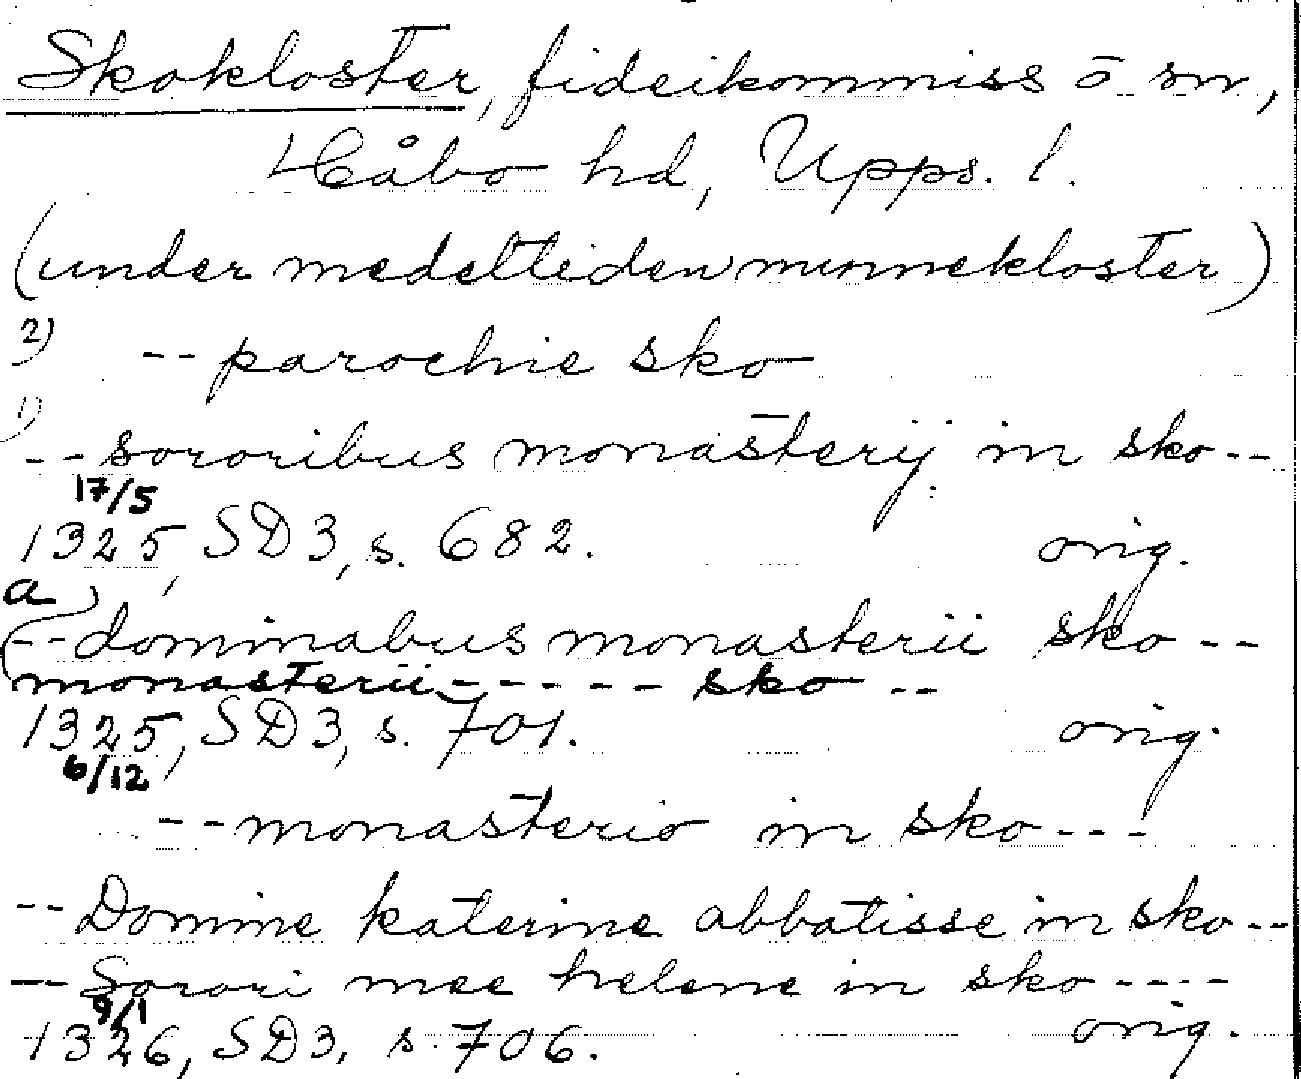 Skokloster, fideikommiss o sn,
Håbo hd, Upps. l.
(under medeltiden nunnekloster)
2) -- parochie sko
1)
-- sororibus monasterij in sko --
17/5
1325, SD3, s. 682. orig.
a
-- dominabus monasterii sko --
monasterii ----- sko --
1325, SD3, s. 701. orig.
6/12
-- monasterio in sko ---
-- Domine katerine abbatisse in sko --
-- Sorori mee helene in sko ----
9/1
1326, SD3, s. 706. orig.